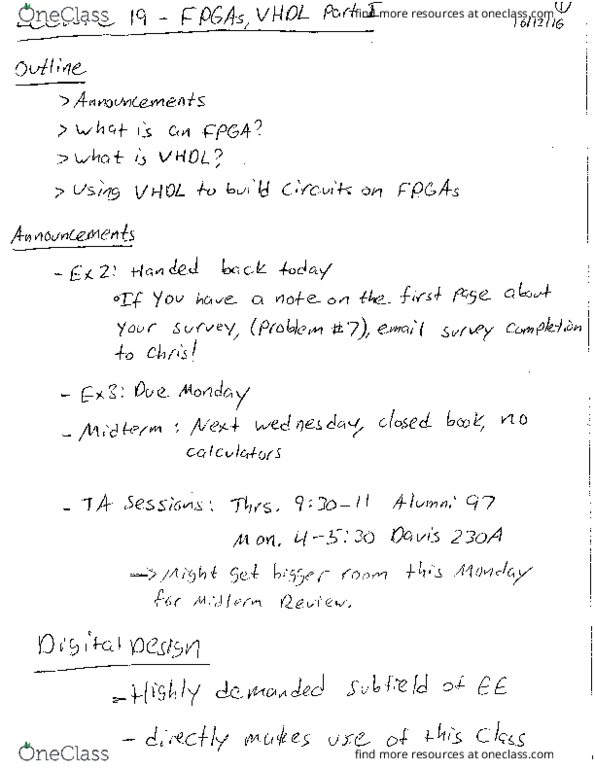 OneClass
find more resources at oneclass.com
19 - FPGAs, VHDL Part I
10/12/16
1
Outline
> Announcements
> What is an FPGA?
> What is VHDL?
> Using VHDL to build circuits on FPGAs
Announcements
- Ex2: Handed back today
• If you have a note on the first page about
your survey, (Problem #7), email survey completion
to Chris!
- Ex3: Due Monday
- Midterm: Next Wednesday, closed book, no
calculators
- TA Sessions: Thrs. 9:30-11 Alumni 97
Mon. 4-5:30 Davis 230A
-> Might get bigger room this Monday
for Midterm Review.
Digital Design
- Highly demanded subfield of EE
- directly makes use of this Class
OneClass
find more resources at oneclass.com